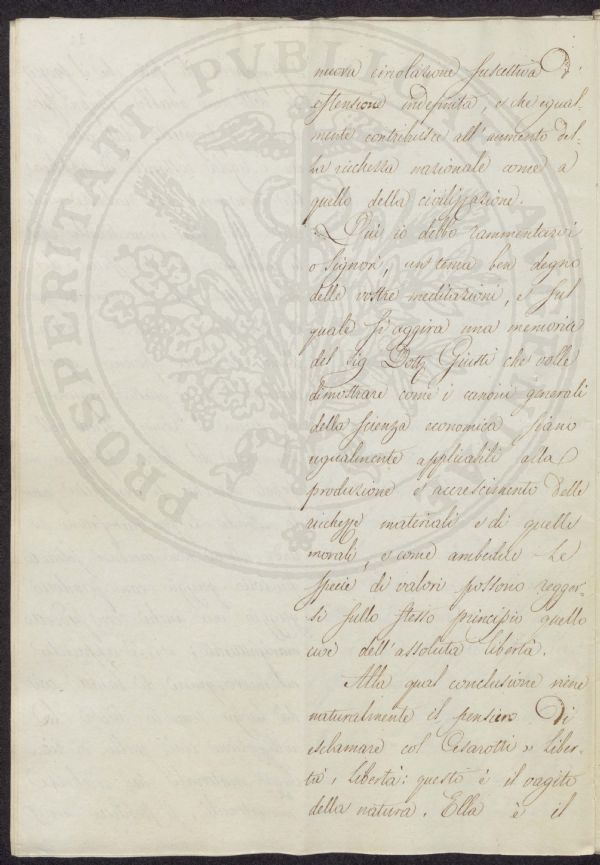 PROSPERITATI PVBLICAE
nuova circolazione suscettiva di
estensione indefinita, e che egual-
mente contribuisce all'aumento del-
la richezza nazionale come a
quello della civilizzazione.
Qui io debbo rammentarvi
o Signori, un tema ben degno
delle vostre meditazioni, e sul
quale si aggira una memoria
del Sig Dott Giusti che volle
dimostrare come i canoni generali
della scienza economica siano
ugualmente applicabili alla
produzione e accrescimento delle
richezze materiali e di quelle
morali, e come ambedue le
specie di valori possono regger-
si sullo stesso principio quello
cioè dell'assoluta libertà.
Alla qual conclusione viene
naturalmente il pensiero di
esclamare col Cesarotti „ Liber-
tà, libertà: questo è il vagito
della natura. Ella è il